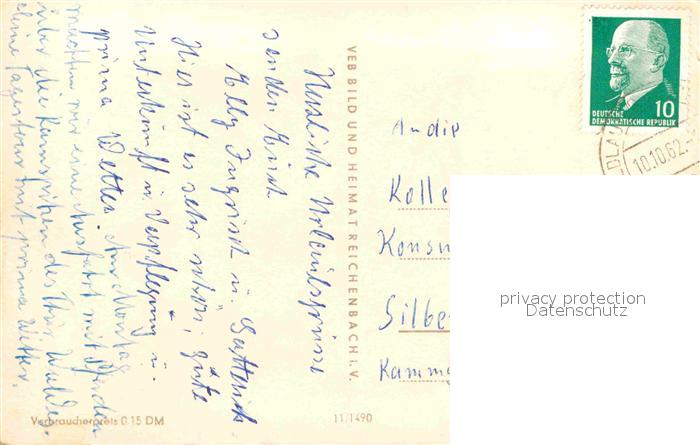 Herzliche Urlaubsgrüsse
senden Euch
Elly Ingrid u.
Hier ist es sehr schön; gute
Unterkunft u. Verpflegung u.
prima Wetter. Am Montag
machten wir eine Ausfahrt mit
über die des Thür. Waldes.
eine Tagestour mit prima Wetter.
VEB BILD UND HEIMAT REICHENBACH i. V.
DEUTSCHE
DEMOKRATISCHE REPUBLIK
10
10.10.62.
An die
Kolle
Konsu
Silbe
Kamm
privacy protection
Datenschutz
Verbraucherpreis 0.15 DM
11/1490